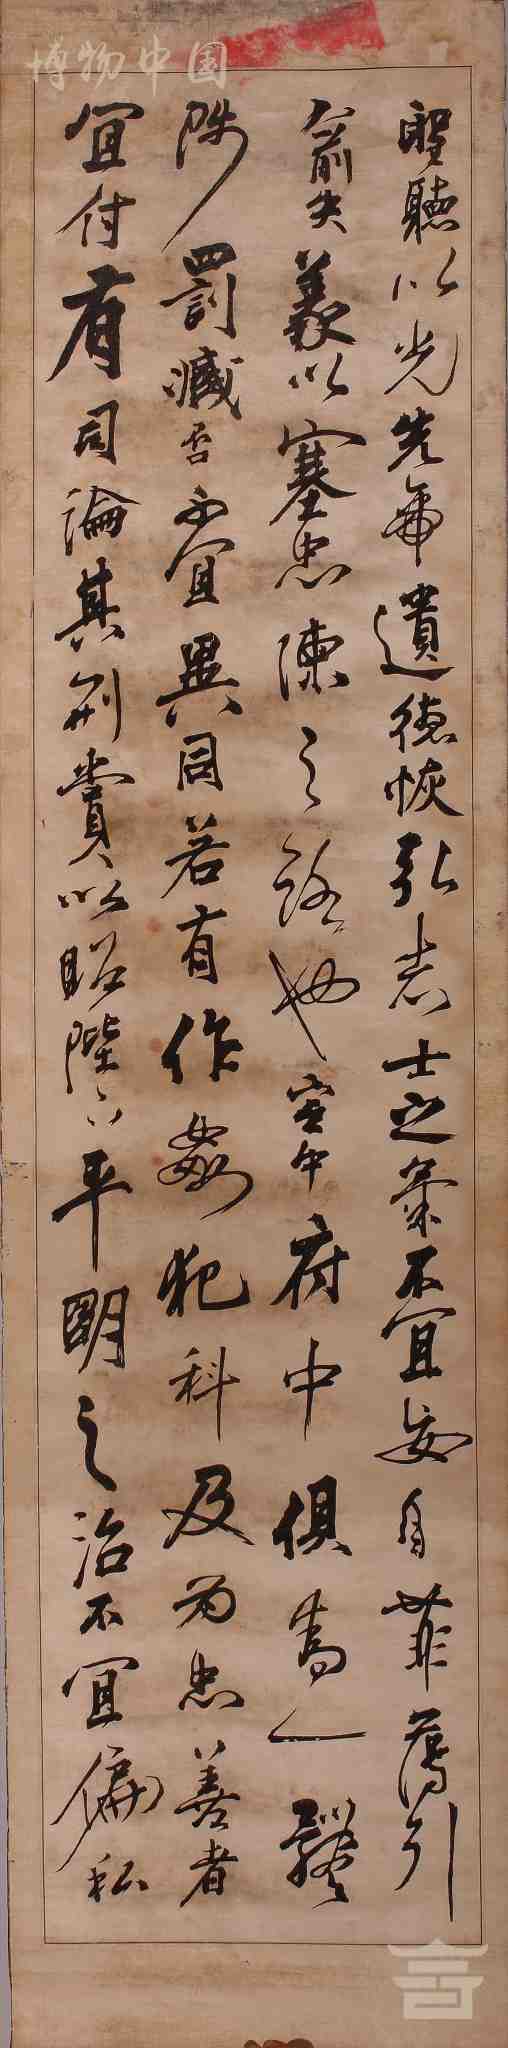 博物中国
聖聽以光先帝遺德恢弘志士之氣不宜妄自菲薄引
喻失義以塞忠諫之路也宮中府中俱為一體
陟罰臧否不宜異同若有作姦犯科及為忠善者
宜付有司論其刑賞以昭陛下平明之治不宜偏私